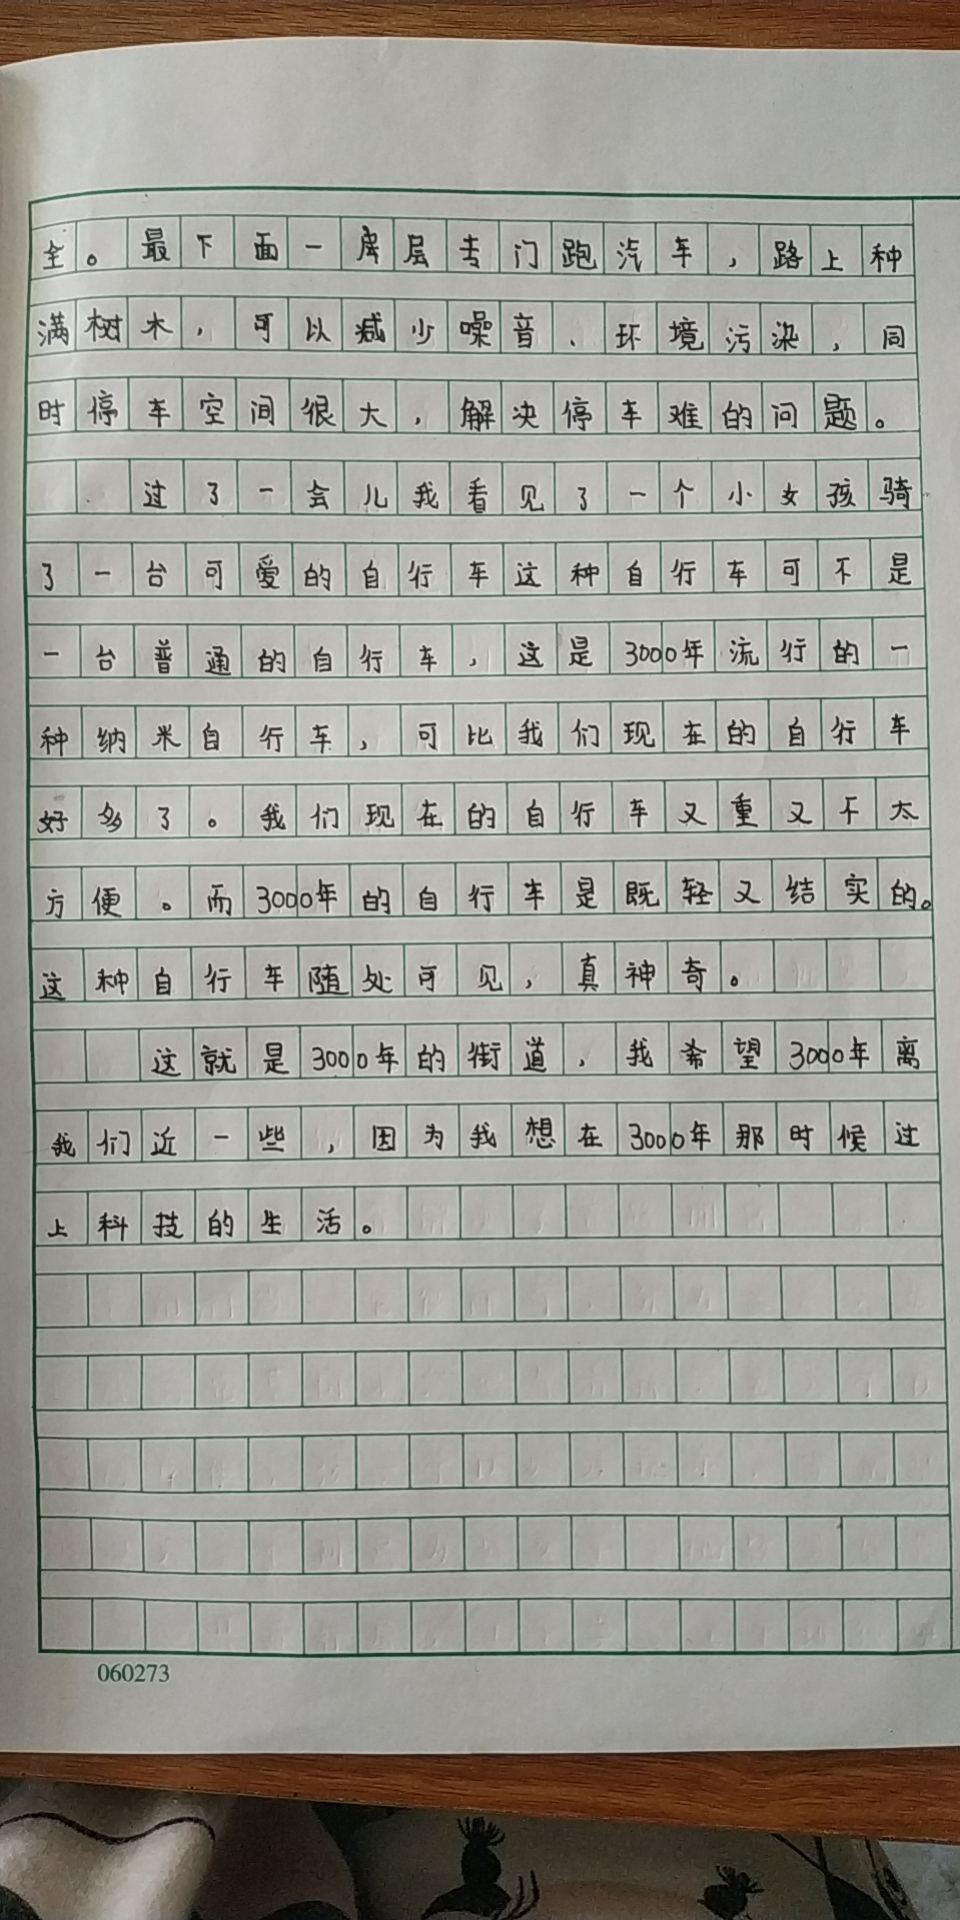 全。最下面一房层专门跑汽车，路上种
满树木，可以减少噪音、环境污染，同
时停车空间很大，解决停车难的问题。
过了一会儿我看见了一个小女孩骑
了一台可爱的自行车这种自行车可不是
一台普通的自行车，这是3000年流行的一
种纳米自行车，可比我们现在的自行车
好多了。我们现在的自行车又重又不太
方便。而3000年的自行车是既轻又结实的。
这种自行车随处可见，真神奇。
这就是3000年的街道，我希望3000年离
我们近一些，因为我想在3000年那时候过
上科技的生活。
060273